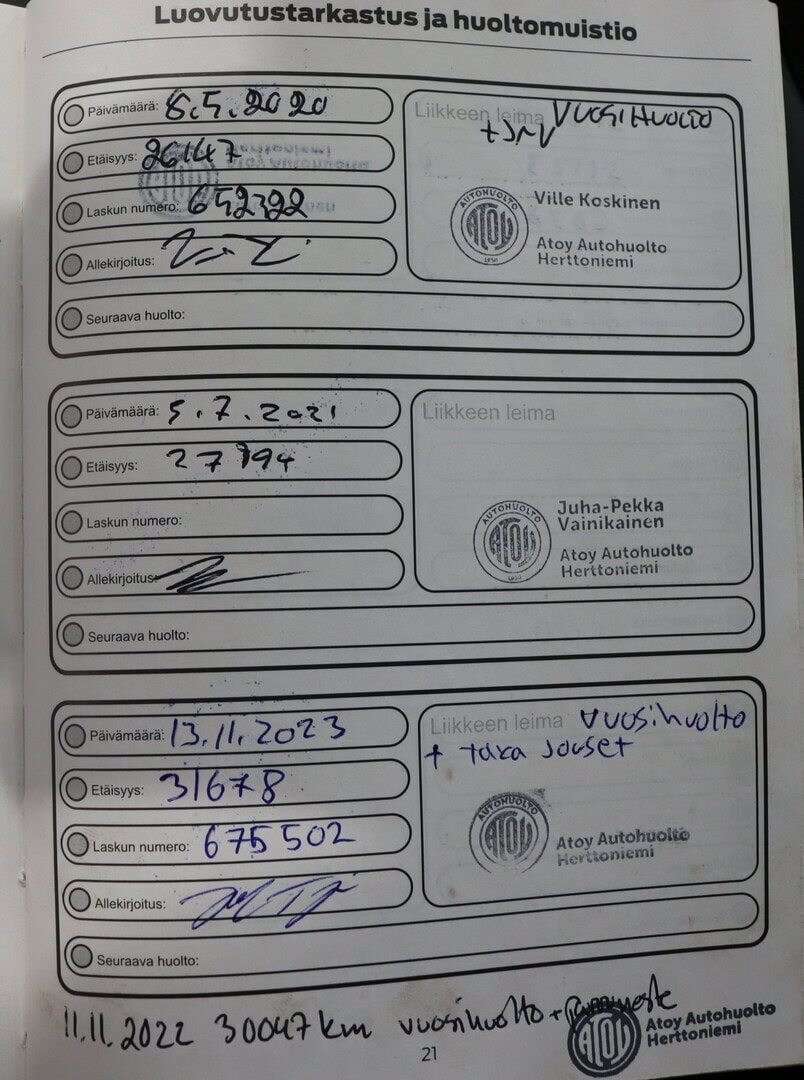 Luovutustarkastus ja huoltomuistio
Päivämäärä: 8.5.2020
Etäisyys: 26147
Laskun numero: 652322
Allekirjoitus:
Seuraava huolto:
Liikkeen leima VUOSIHUOLTO
AUTOHUOLTO
ATOY
Ville Koskinen
Atoy Autohuolto
Herttoniemi
Päivämäärä: 5.7.2021
Etäisyys: 27794
Laskun numero:
Allekirjoitus:
Seuraava huolto:
Liikkeen leima
AUTOHUOLTO
ATOY
Juha-Pekka
Vainikainen
Atoy Autohuolto
Herttoniemi
Päivämäärä: 13.11.2023
Etäisyys: 31678
Laskun numero: 675502
Allekirjoitus:
Seuraava huolto:
Liikkeen leima vuosihuolto
+ taka jouset
AUTOHUOLTO
ATOY
Atoy Autohuolto
Herttoniemi
11.11.2022 30047km vuosihuolto +
ATOY
Atoy Autohuolto
Herttoniemi
21